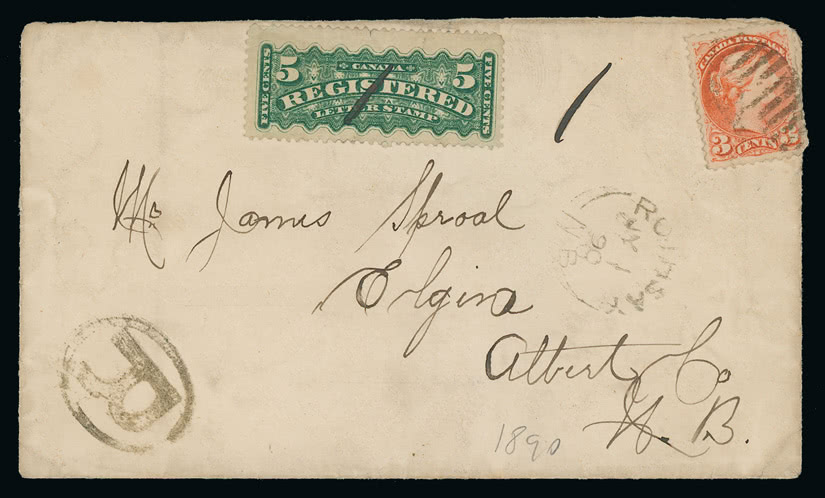 5 CANADA 5
FIVE CENTS REGISTERED FIVE CENTS
LETTER STAMP
1
CANADA POSTAGE
3 CENTS 3
Mr James Sproal
Elgin
Albert Co
N. B.
1890
R
N.B.
90